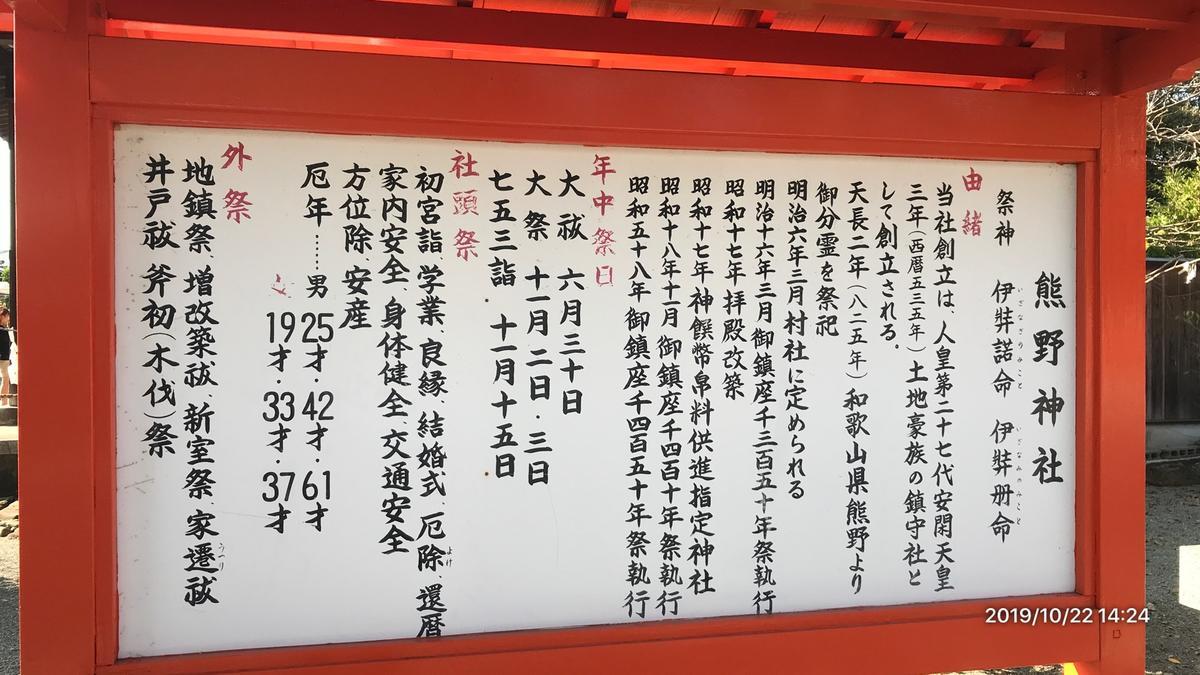 熊野神社
祭神 伊弉諾命 伊弉册命
いざなぎのみこと いざなみのみこと
由緒
当社創立は、人皇第二十七代安閑天皇
三年(西暦五三五年)土地豪族の鎮守社と
して創立される。
天長二年(八二五年)和歌山県熊野より
御分霊を祭祀
明治六年三月村社に定められる
明治十六年三月御鎮座千三百五十年祭執行
昭和十七年拝殿改築
昭和十七年神饌幣帛料供進指定神社
昭和十八年十一月御鎮座千四百十年祭執行
昭和五十八年御鎮座千四百五十年祭執行
年中祭日
大祓 六月三十日
大祭 十一月二日・三日
七五三詣 十一月十五日
社頭祭
初宮詣、学業、良縁、結婚式、厄除、還暦
よけ
家内安全、身体健全、交通安全
方位除、安産
厄年……男25才・42才・61才
女19才・33才・37才
外祭
地鎮祭、増改築祓、新室祭、家遷祓
うつり
井戸祓、斧初(木伐)祭
2019/10/22 14:24